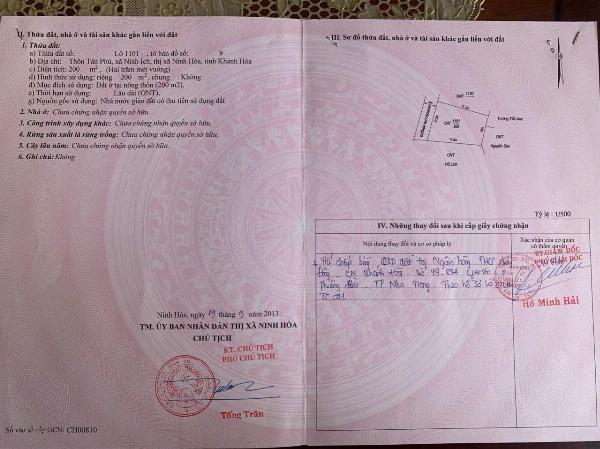 II. Thửa đất, nhà ở và tài sản khác gắn liền với đất
1. Thửa đất:
a) Thửa đất số: Lô 1101 , tờ bản đồ số: 9
b) Địa chỉ: Thôn Tân Phú, xã Ninh Ích, thị xã Ninh Hòa, tỉnh Khánh Hòa
c) Diện tích: 200 m², (Hai trăm mét vuông)
d) Hình thức sử dụng: riêng 200 m², chung: Không
đ) Mục đích sử dụng: Đất ở tại nông thôn (200 m2).
e) Thời hạn sử dụng: Lâu dài (ONT).
g) Nguồn gốc sử dụng: Nhà nước giao đất có thu tiền sử dụng đất
2. Nhà ở: Chưa chứng nhận quyền sở hữu.
3. Công trình xây dựng khác: Chưa chứng nhận quyền sở hữu.
4. Rừng sản xuất là rừng trồng: Chưa chứng nhận quyền sở hữu.
5. Cây lâu năm: Chưa chứng nhận quyền sở hữu.
6. Ghi chú: Không
Ninh Hòa, ngày 19 tháng 9 năm 2013
TM. ỦY BAN NHÂN DÂN THỊ XÃ NINH HÒA
CHỦ TỊCH
KT. CHỦ TỊCH
PHÓ CHỦ TỊCH
Tống Trân
Số vào sổ cấp GCN: CH00810
III. Sơ đồ thửa đất, nhà ở và tài sản khác gắn liền với đất
ONT 1102
ONT 1101
200
ONT
Hồ Lan
ONT
Tỷ lệ : 1/500
IV. Những thay đổi sau khi cấp giấy chứng nhận
Nội dung thay đổi và cơ sở pháp lý
Xác nhận của cơ quan
có thẩm quyền
Thế chấp bằng QSD đất tại Ngân hàng TMCP
CN Khánh Hòa
TP Nha Trang - Theo hồ sơ số
KT. GIÁM ĐỐC
PHÓ GIÁM ĐỐC
Hồ Minh Hải